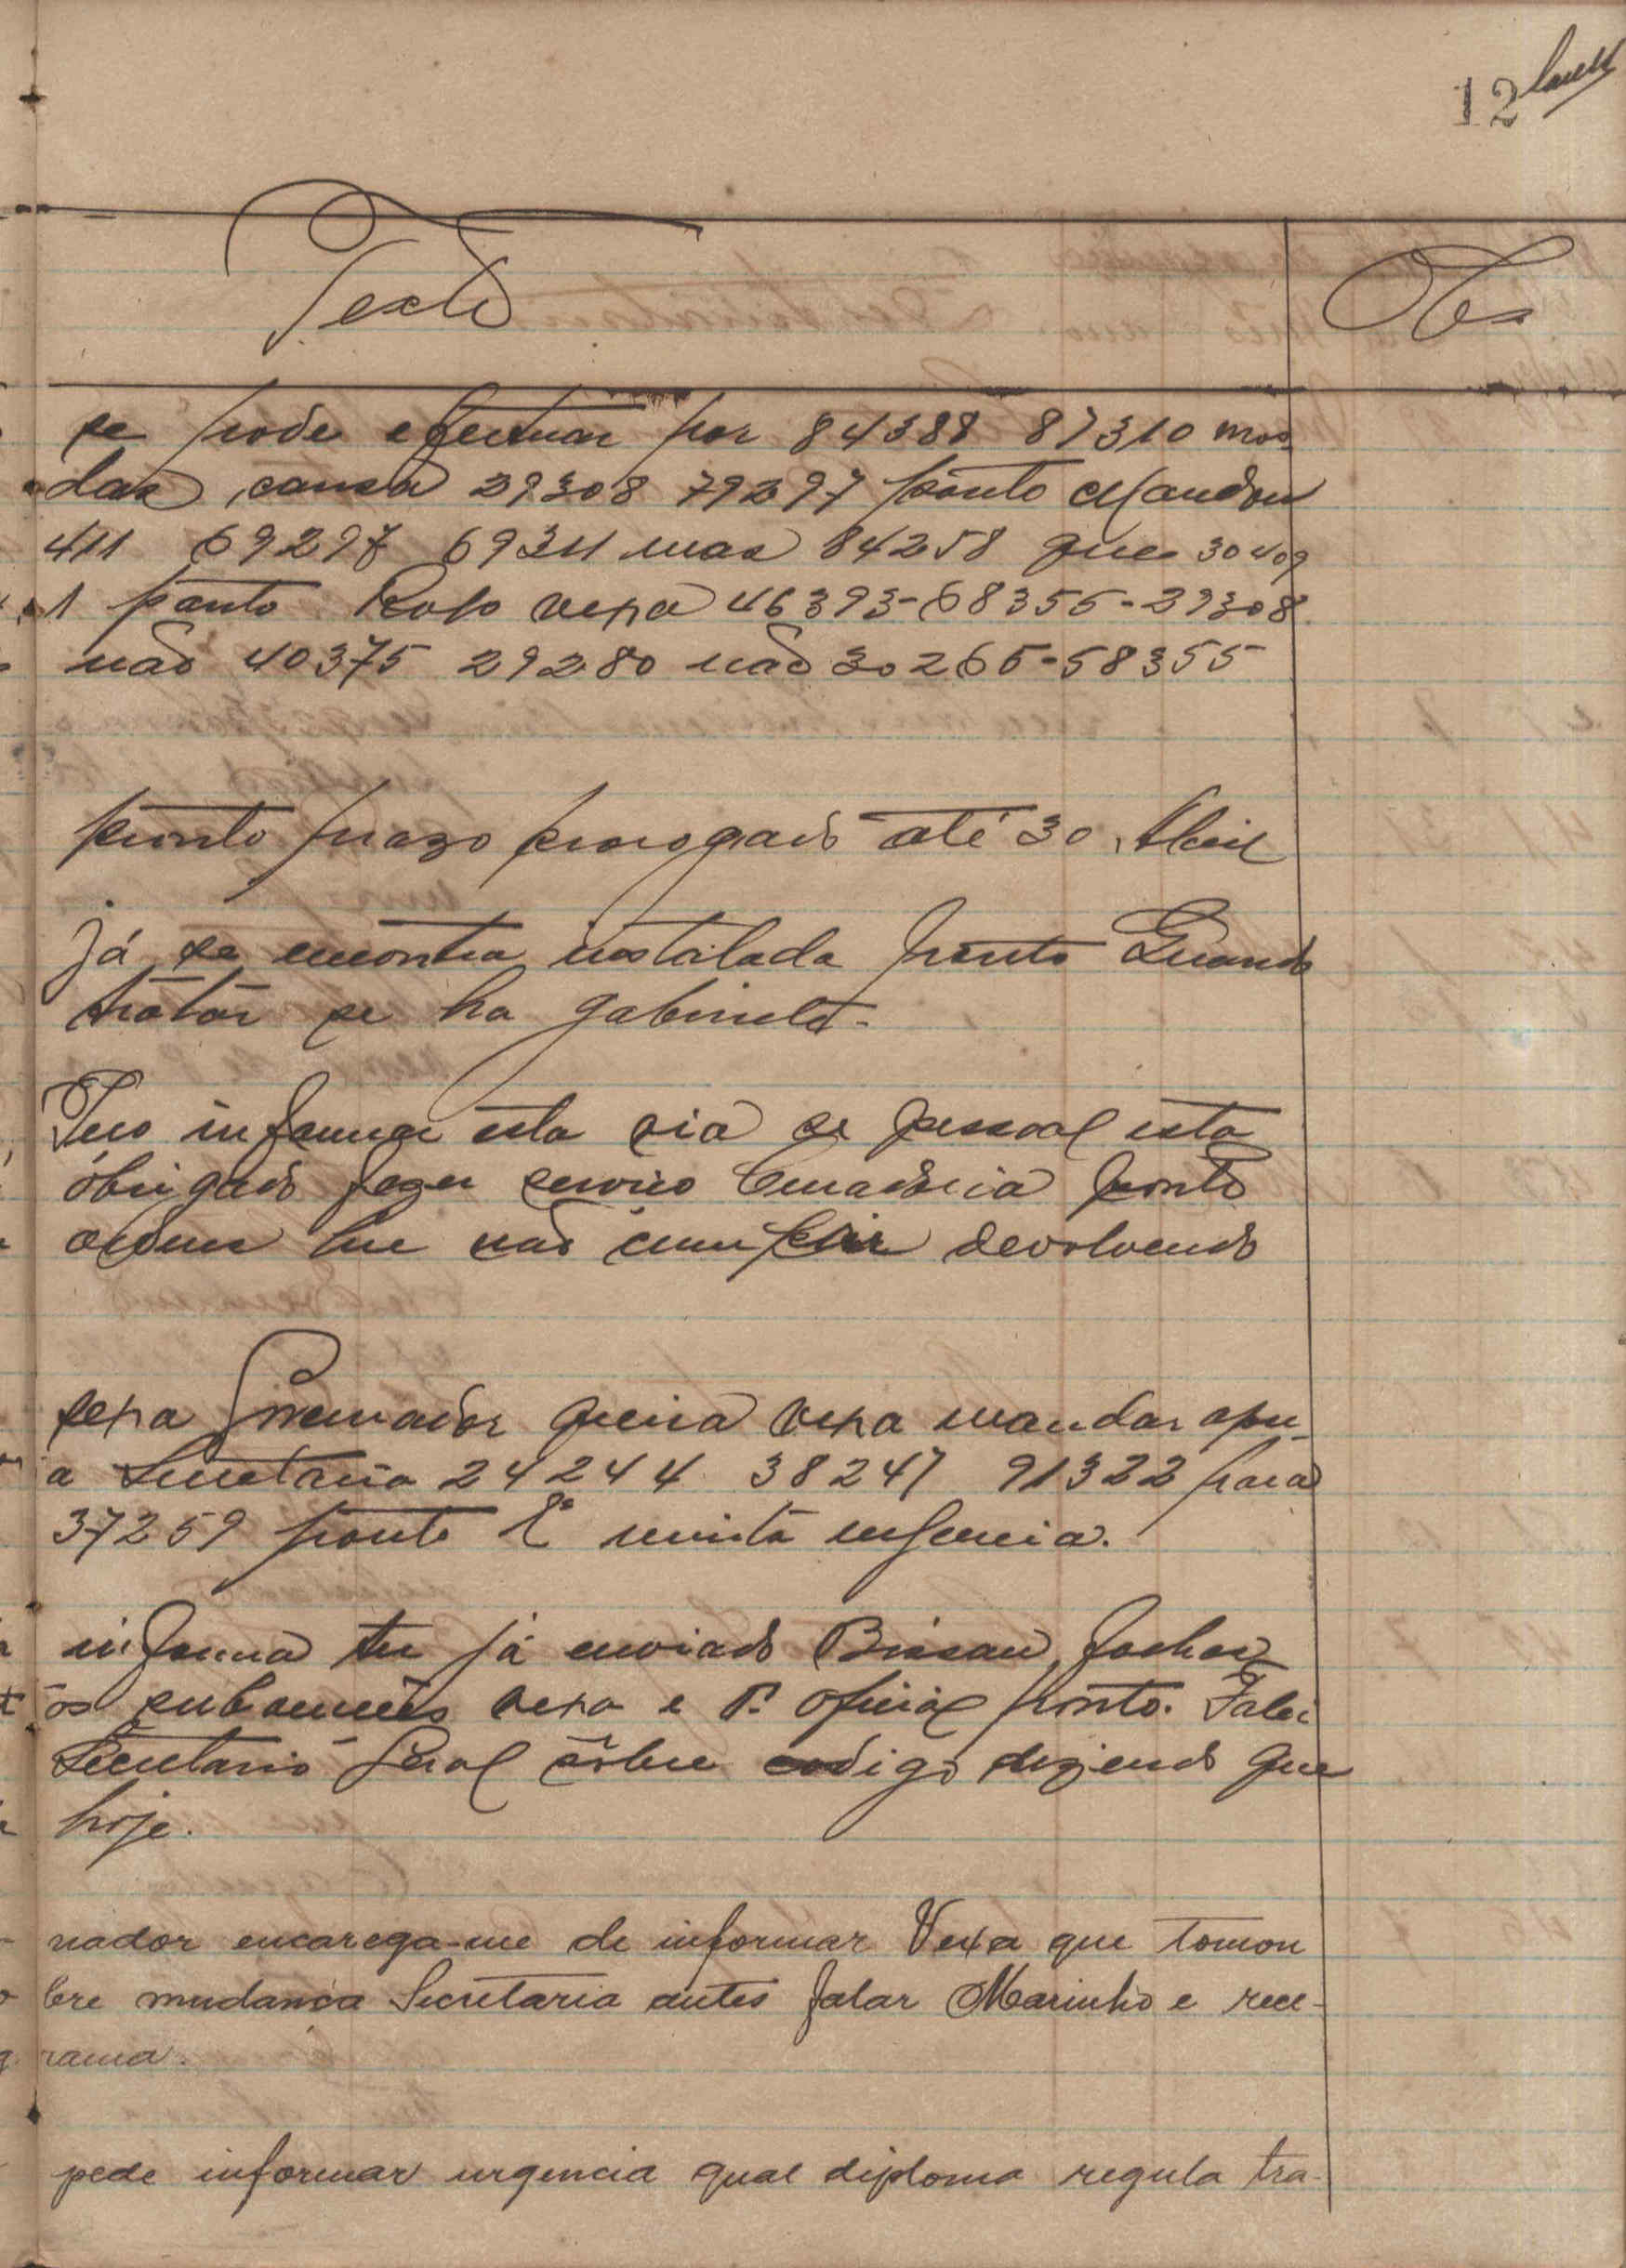 12
Texto
Obs
se pode efectuar por 84388 87310 mas
das causa 29308 79297 ponto Mandou
411 69297 69311 mas 84258 que 30409
1 ponto Rogo vexa 46393-68355-29308
não 40375 29280 não 30265-58355
ponto prazo prorogado até 30 Abril
já se encontra instalada ponto Quando
tratar se ha gabinete.
Peço informar esta via se pessoal esta
obrigado fazer serviço ponto
ordens lhe não cumprir devolvendo
sexa Governador queira vexa mandar apu-
a Secretaria 24244 38247 91322 para
37259 ponto É muita urgencia.
informa ter já enviado Bissau
os vexa e 1º oficial ponto. Falei
Secretario Geral sôbre codigo dizendo que
hoje.
nador encarega-me de informar Vexa que tomou
bre mudança Secretaria antes falar Marinho e rece-
rama.
pede informar urgencia qual diploma regula tra-